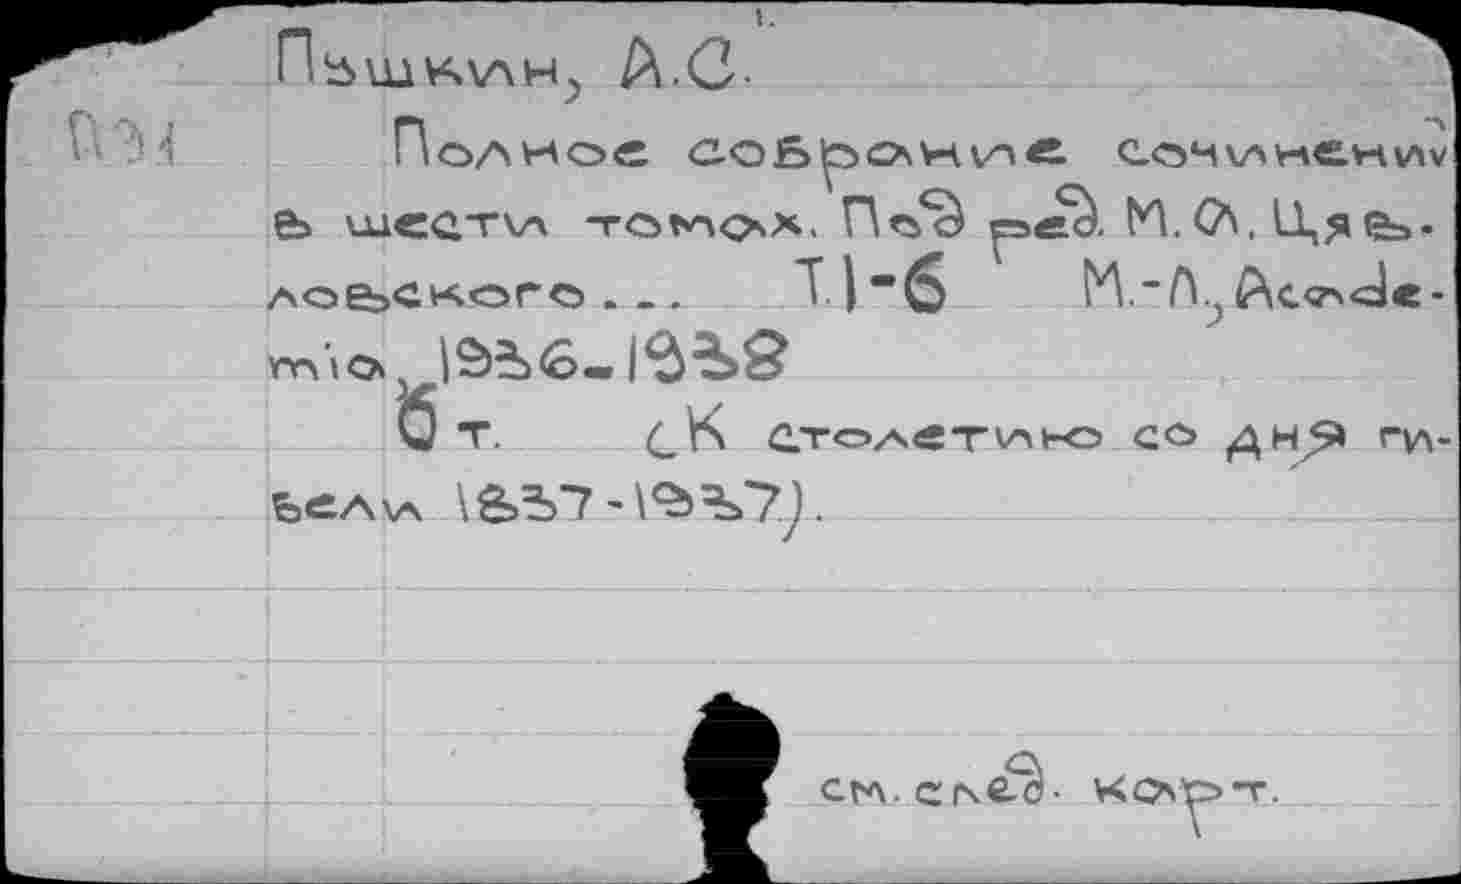 1.
Пушкин, А.С.
Полное собрание сочинений
в шести томах. Под ред. М.А. Цяв-
ловского... Т.1-6 М.-Л., Acade-
mia, 1936-1938
6 т. (К столетию со дня ги-
бели 1837-1937).
см. след. карт.